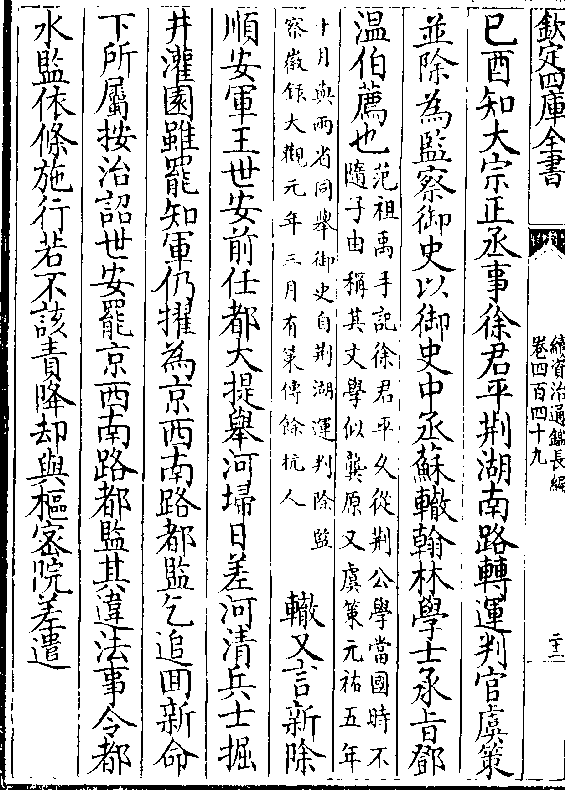 欽定四庫全書
續資治通鑑長編
卷四百四十九
己酉知大宗正丞事徐君平荆湖南路轉運判官虞策
並除為監察御史以御史中丞蘇轍翰林學士承旨鄧
温伯薦也
范祖禹手記徐君平久從荆公學當國時不
隨子由稱其文學似龔原又虞策元祐五年
十月與兩省同舉御史自荆湖運判除監
察徽作大觀元年三月有策傳餘杭人
轍又言新除
順安軍王世安前任都大提舉河埽日差河清兵士掘
井灌園雖罷知軍仍擢為京西南路都監乞追囘新命
下所屬按治詔世安罷京西南路都監其違法事令都
水監依條施行若不該責降却與樞密院差遣